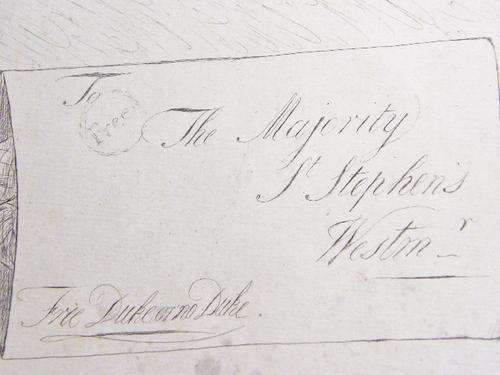 To
Free
The Majority
St Stephen's
Westmr
Frie Duke or no Duke.